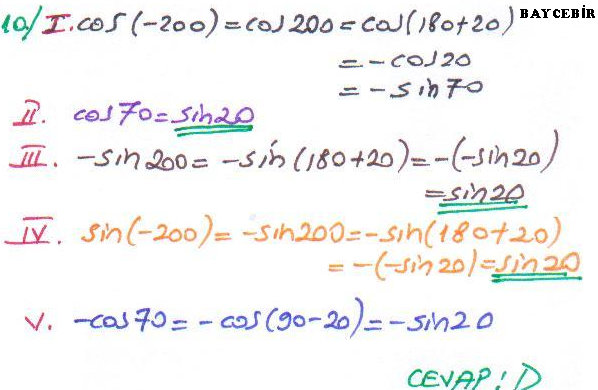 10/ I. cos(-200)=cos200=cos(180+20) BAYCEBİR
=-cos20
=-sin70
II. cos70=sin20
III. -sin200= -sin(180+20)=-(-sin20)
=sin20
IV. sin(-200)= -sin200=-sin(180+20)
=-(-sin20)=sin20
V. -cos70= -cos(90-20)=-sin20
CEVAP: D